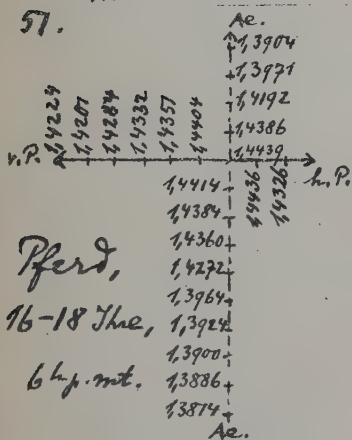 57.
Ae.
1,3904
1,3971
1,4192
1,4386
1,4439
v.P.
1,4224
1,4201
1,4284
1,4332
1,4357
1,4404
h.P.
1,4436
1,4326
1,4414
1,4384
1,4360
1,4272
1,3964
1,3924
1,3900
1,3886
1,3814
Ae.
Pferd,
16-18 Jhre,
6 h. p. mt.